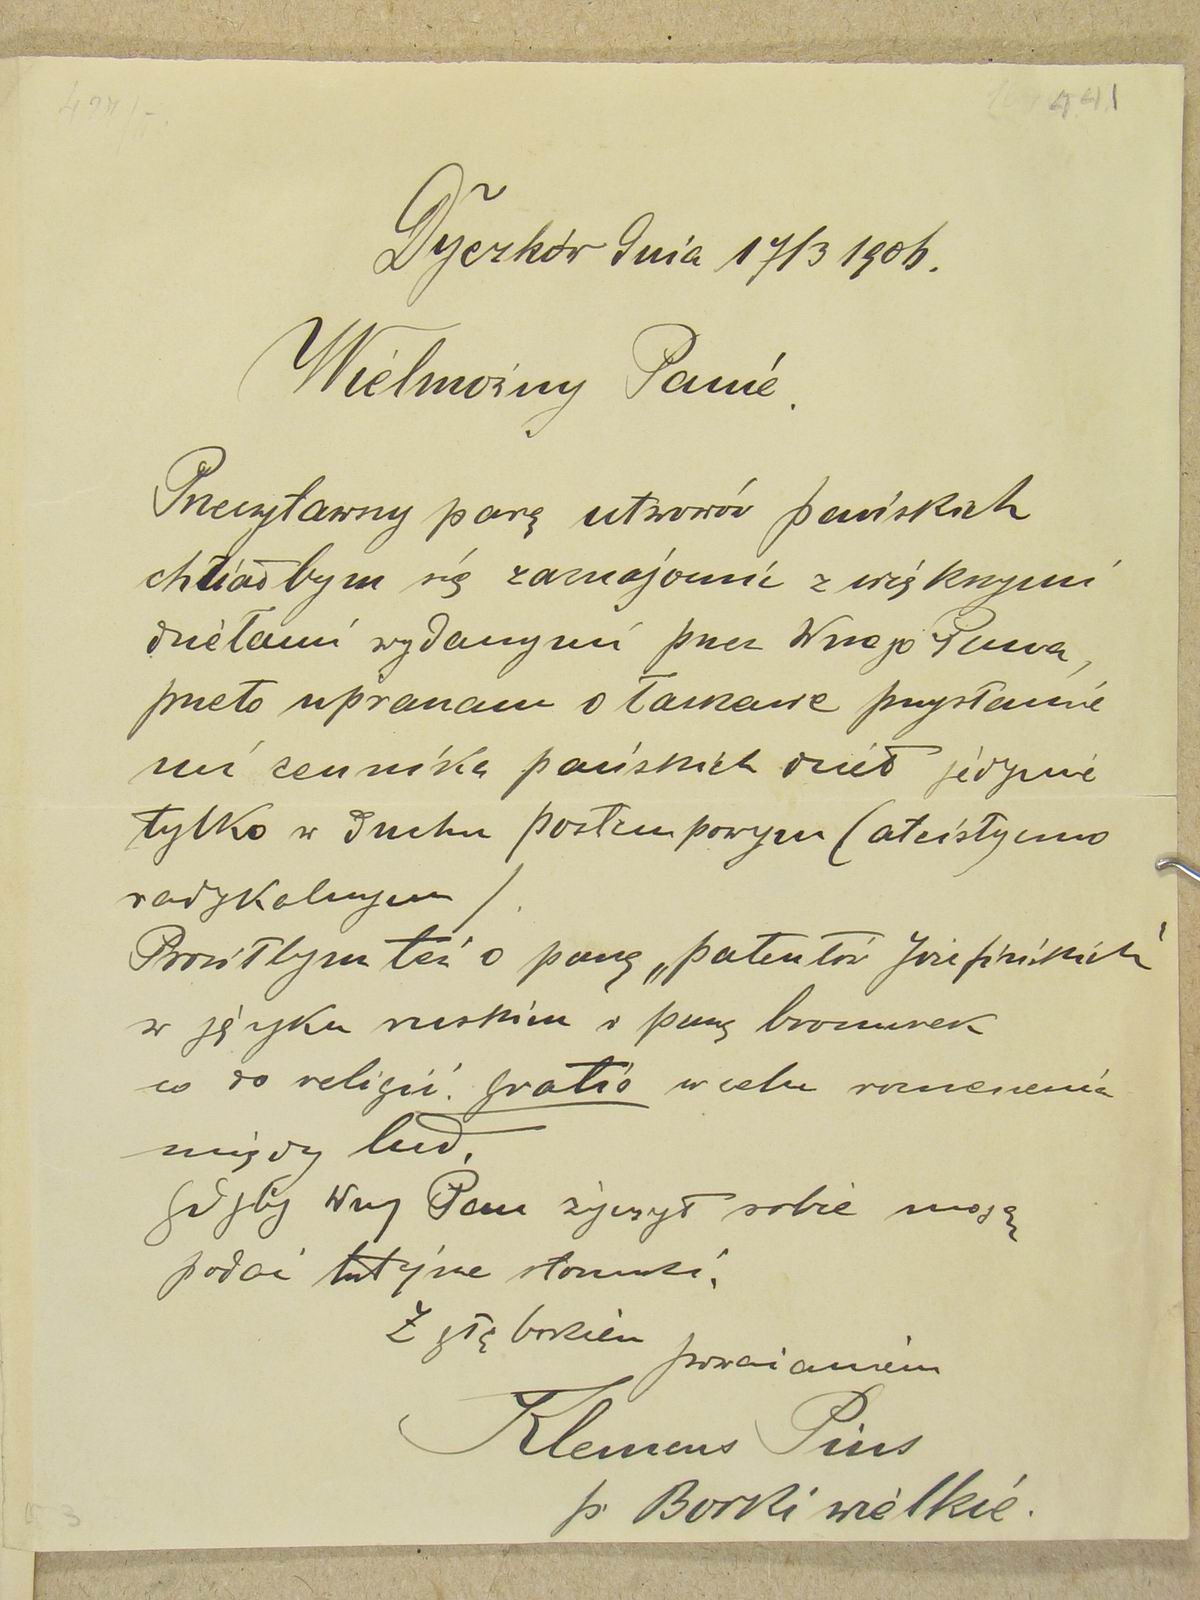 441
Dyczków dnia 17/3 1906.
Wielmożny Panie.
Przeczytawszy parę utworów pańskich
chciałbym się zaznajomić z większymi
dziełami wydanymi przez Wnego Pana,
przeto upraszam o łaskawe przysłanie
mi cennika pańskich dzieł jedynie
tylko w duchu postempowym (ateistyczno
radykalnym).
Prosiłbym też o parę „patentów Józefińskich"
w języku ruskim i parę broszurek
co do religii. gratis w celu rozszerzenia
między lud.
Gdyby Wny Pan życzył sobie mogę
podać tutejsze stosunki.
Z głębokiem
poważaniem
Klemens Pius
p. Borki wielkie.